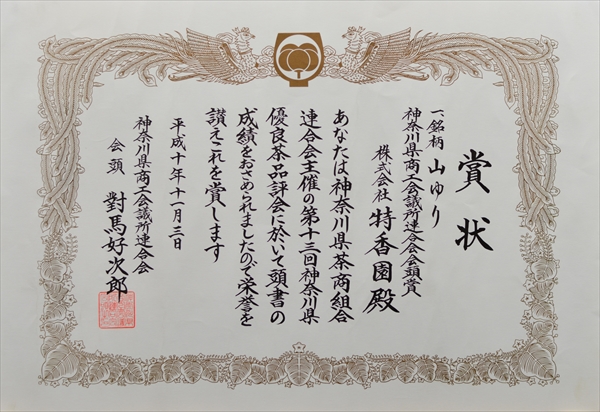 賞状
一、銘柄 山ゆり
神奈川県商工会議所連合会会頭賞
株式会社 特香園殿
あなたは神奈川県茶商組合
連合会主催の第十三回神奈川県
優良茶品評会に於いて頭書の
成績をおさめられましたので栄誉を
讃えこれを賞します
平成十年十一月三日
神奈川県商工会議所連合会
会頭 對馬好次郎